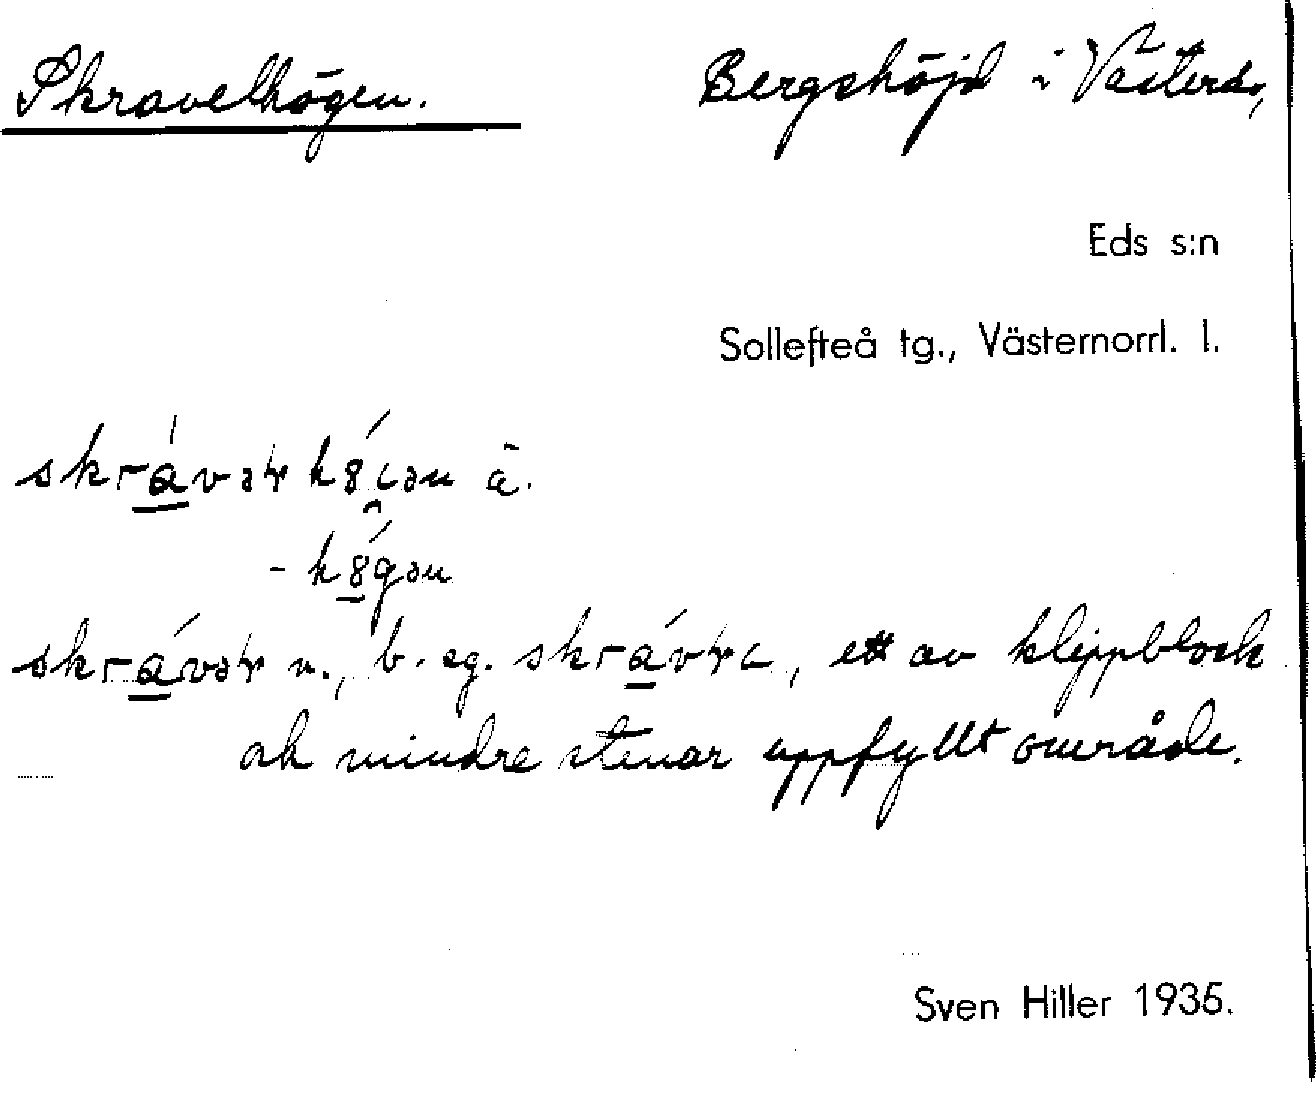 Skravelhögen. Bergshöjd i Västerås,
Eds s:n
Sollefteå tg., Västernorrl. l.
skràvəɽ hö́gən ä.
- hö́gən
skrávəɽ n., b. sg. skrávɽa, ett av klippblock
och mindre stenar uppfyllt område.
Sven Hiller 1935.